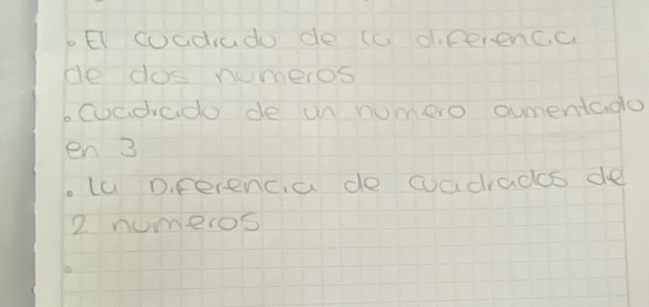 • El cuadrado de la diferencia
de dos numeros
• Cuadrado de un numero aumentado
en 3
• la Diferencia de cuadrados de
2 numeros
•